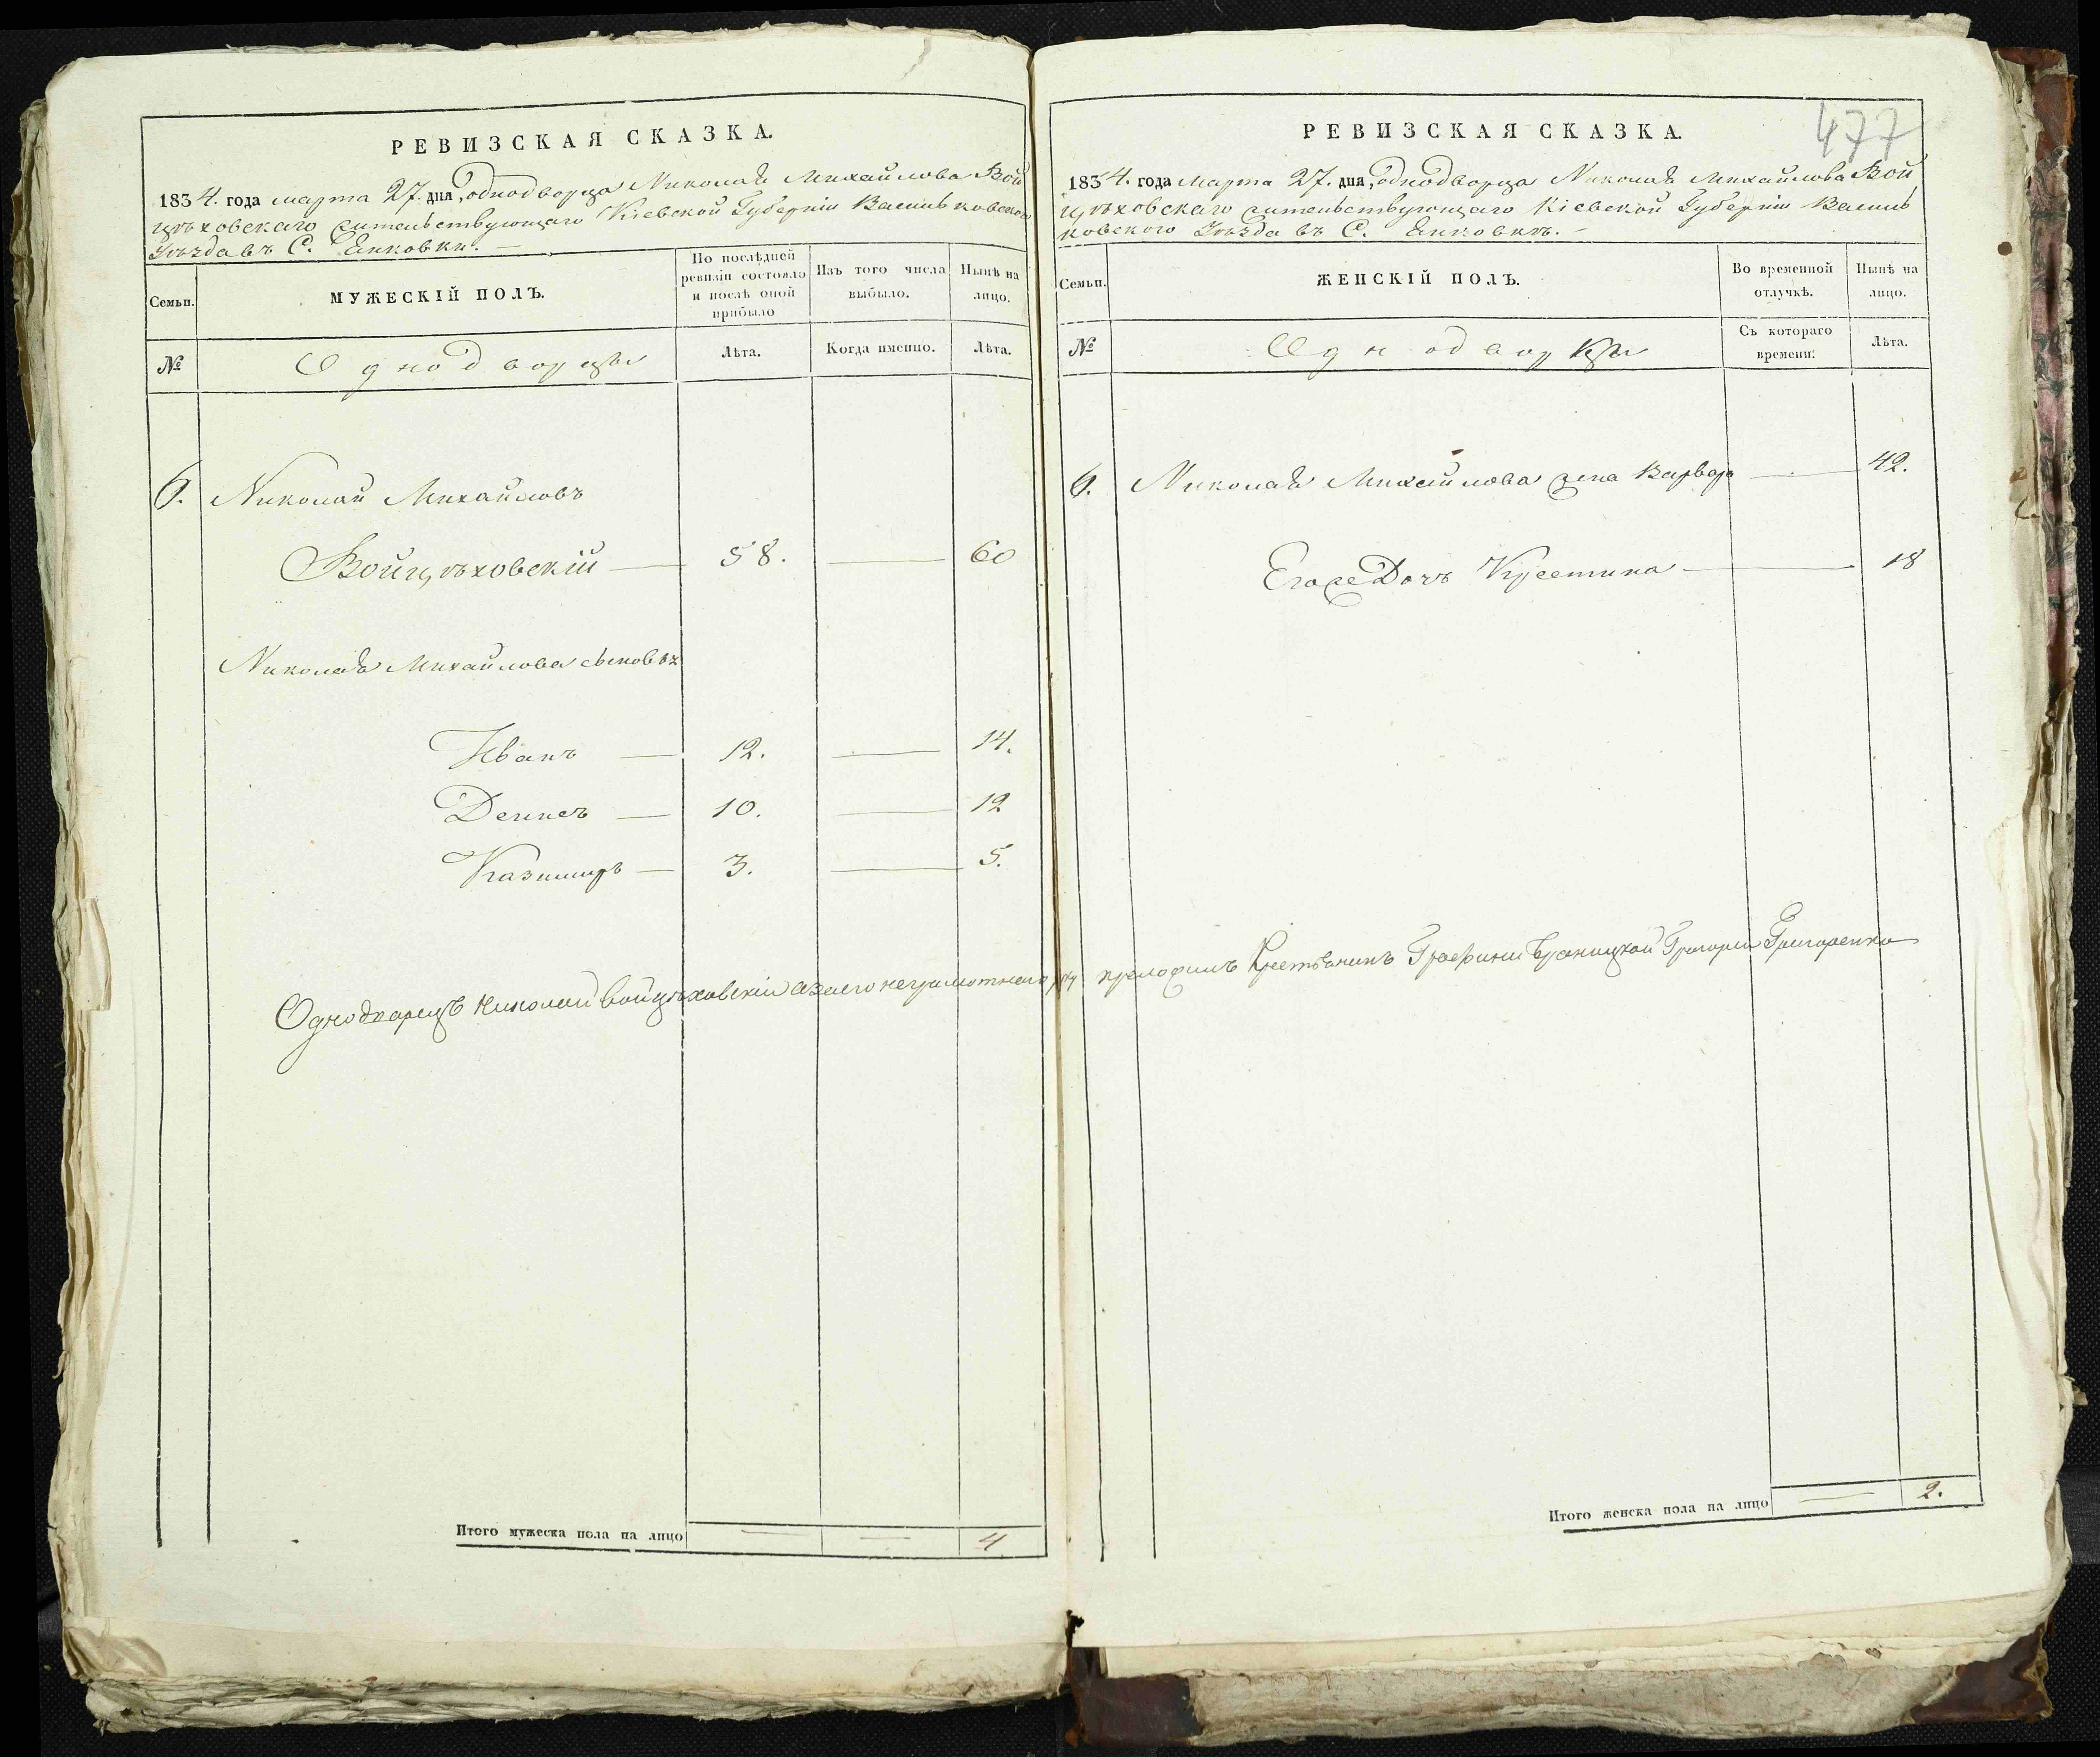 РЕВИЗСКАЯ СКАЗКА.
1834. года марта 27. дня, однодворца Николая Михайлова Вой
цѣховскаго жительствующаго Кіевской Губерніи Васильковского
Уѣзда въ С. Янковки. —
Семьи.
МУЖЕСКІЙ ПОЛЪ.
По послѣдней
ревизіи состояло
и послѣ оной
прибыло
Изъ того числа
выбыло.
Нынѣ на
лицо.
№
Однодворцы
Лѣта.
Когда именно.
Лѣта.
6. Николай Михайловъ
Войцѣховскій — 58. — 60
Николая Михайлова сыновья
Иванъ — 12. — 14.
— 10. — 12
Казимиръ — 3. — 5.
Однодворецъ Николай Войцѣховскій а за его неграмотнаго руку приложилъ Крестьянинъ Графини Браницкой Григорій Григоренко
Итого мужеска пола на лицо — — 4
477
РЕВИЗСКАЯ СКАЗКА.
1834. года марта 27. дня, однодворца Николая Михайлова Вой
цѣховскаго жительствующаго Кіевской Губерніи Василь
ковского Уѣзда въ С. Янковкѣ. —
Семьи.
ЖЕНСКІЙ ПОЛЪ.
Во временной
отлучкѣ.
Нынѣ на
лицо.
№
Однодворки
Съ котораго
времени.
Лѣта.
6. Николая Михайлова жена Варвара — 42.
Его же Дочь Кристина — 18
Итого женска пола на лицо — 2.